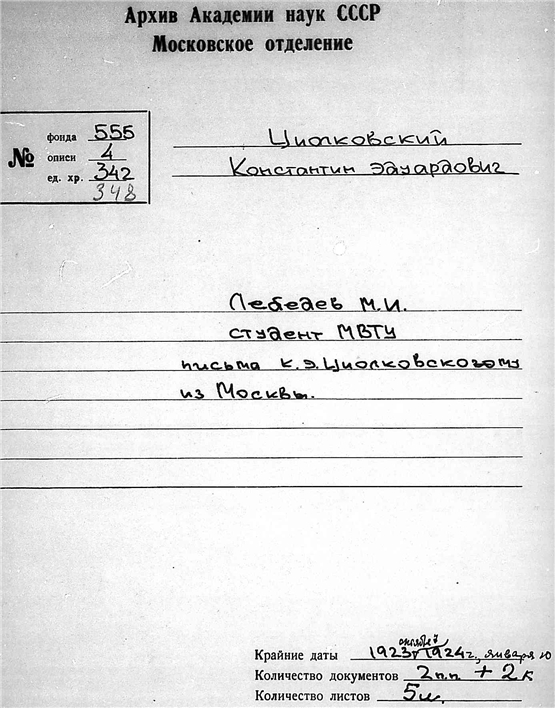 Архив Академии наук СССР
Московское отделение
№
фонда 555
описи 4
ед. хр. 342
348
Циолковский
Константин Эдуардович
Лебедев М.И.
студент МВТУ
письма К.Э. Циолковскому
из Москвы.
Крайние даты 1923, октября 7 1924 г., января 10
Количество документов 2 п.п + 2 к
Количество листов 5 л.